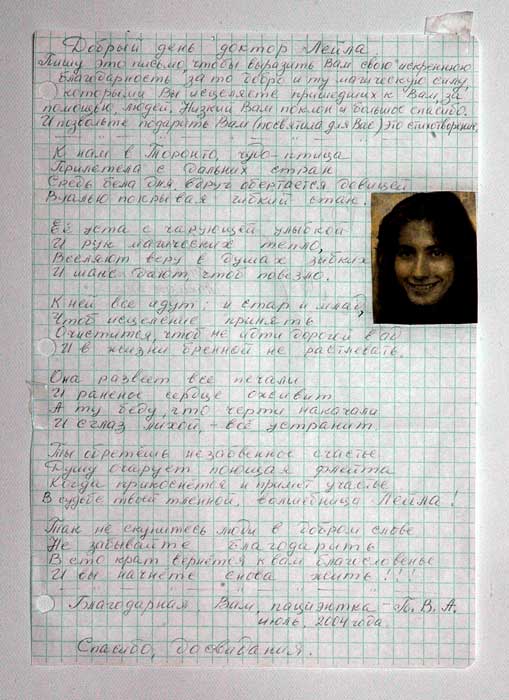 Добрый день доктор Лейла
Пишу это письмо, чтобы выразить Вам свою искреннюю
благодарность за то добро и ту магическую силу,
которыми Вы исцеляете пришедших к Вам за
помощью людей. Низкий Вам поклон и большое спасибо.
И позвольте подарить Вам (посвятила для Вас) это стихотворение.
К нам в Торонто, чудо-птица
Прилетела с дальних стран
Средь бела дня вдруг обертается девицей
Вуалью покрывая гибкий стан.
Её уста с чарующей улыбкой
И рук магических тепло,
Вселяют веру в душах зыбких
И шанс дают, чтоб повезло.
К ней все идут: и стар и млад,
Чтоб исцеление принять
Очистится, чтоб не идти дорогой в ад
И в жизни бренной не растлевать.
Она развеет все печали
И раненое сердце оживит
А ту беду, что черти накачали
И сглаз лихой, - всё устранит
Ты обретёшь незабвенное счастье
Душу очарует поющая флейта
Когда прикоснётся и примет участье
В судьбе твоей тленной, волшебница Лейла!
Так не скупитесь люди в добром слове
Не забывайте благодарить
В сто крат вернётся к вам благословенье
И вы начнёте снова жить!!!
Благодарная Вам, пациентка - П. В. А.
июль, 2004 года
Спасибо, досвидания.